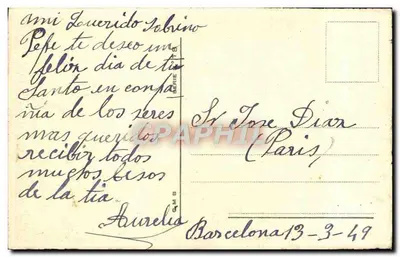 mi Querido Sobrino
Pepe te deseo un
felón dia de tu
Santo en conpa
ñia de los seres
mas queridos
recibir todos
muchos besos
de la tia
Aurelia
Sr Jose Diaz
(Paris)
Barcelona 13-3-49
CPAPHIL
SERIE
C.M.B